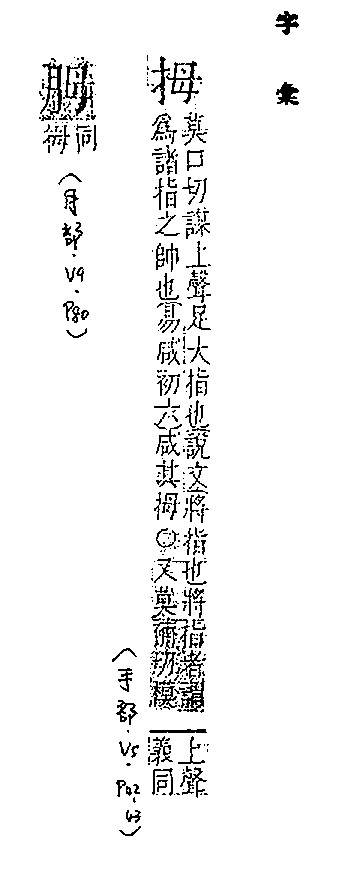 字彙
拇
莫口切謀上聲足大指也說文將指也將指者謂
為諸指之帥也易咸初六咸其拇○又莫補切模
上聲
義同
(手部.V5.P42,43)
胟
同
拇
(月部.V9.P80)